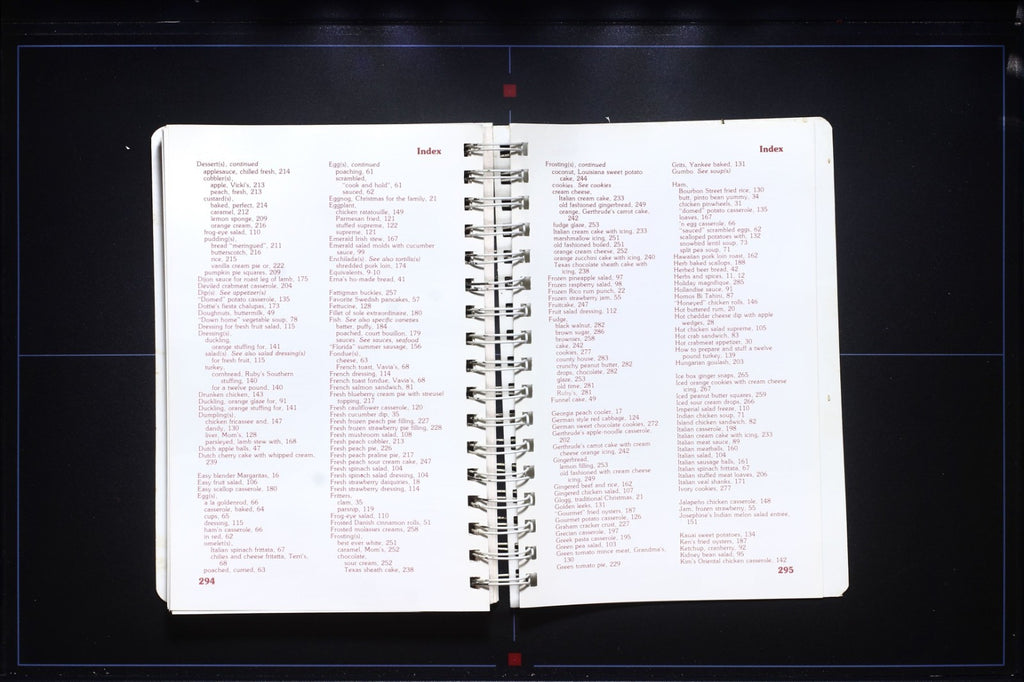 Index
Dessert(s), continued
applesauce, chilled fresh, 214
cobbler(s),
apple, Vicki's, 213
peach, fresh, 213
custard(s),
baked, perfect, 214
caramel, 212
lemon sponge, 209
orange cream, 216
frog-eye salad, 110
pudding(s),
bread "meringued", 211
butterscotch, 216
rice, 215
vanilla cream pie or, 222
pumpkin pie squares, 209
Dijon sauce for roast leg of lamb, 175
Deviled crabmeat casserole, 204
Dip(s). See appetizer(s)
"Domed" potato casserole, 135
Dottie's fiesta chalupas, 173
Doughnuts, buttermilk, 49
"Down home" vegetable soup, 78
Dressing for fresh fruit salad, 115
Dressing(s),
duckling,
orange stuffing for, 141
salad(s). See also salad dressing(s)
for fresh fruit, 115
turkey,
cornbread, Ruby's Southern
stuffing, 140
for a twelve pound, 140
Drunken chicken, 143
Duckling, orange glaze for, 91
Duckling, orange stuffing for, 141
Dumpling(s),
chicken fricassee and, 147
dandy, 130
liver, Mom's, 128
parsleyed, lamb stew with, 168
Dutch apple balls, 47
Dutch cherry cake with whipped cream,
239
Easy blender Margaritas, 16
Easy fruit salad, 106
Easy scallop casserole, 180
Egg(s),
a la goldenrod, 66
casserole, baked, 64
cups, 65
dressing, 115
ham'n casserole, 66
in nest, 62
omelet(s),
Italian spinach frittata, 67
chilies and cheese frittatta, Terri's,
68
poached, curried, 63
294
Egg(s), continued
poaching, 61
scrambled,
"cook and hold", 61
sauced, 62
Eggnog, Christmas for the family, 21
Eggplant,
chicken ratatouille, 149
Parmesan fried, 121
stuffed supreme, 122
supreme, 121
Emerald Irish stew, 167
Emerald salad molds with cucumber
sauce, 99
Enchilada(s). See also tortilla(s)
shredded pork loin, 174
Equivalents, 9-10
Erna's ho-made bread, 41
Fattigman buckles, 257
Favorite Swedish pancakes, 57
Fettucine, 128
Fillet of sole extraordinaire, 180
Fish. See also specific varieties
batter, puffy, 184
poached, court bouillon, 179
sauces. See sauces, seafood
"Florida" summer sausage, 156
Fondue(s),
cheese, 63
French toast, Vavia's, 68
French dressing, 114
French toast fondue, Vavia's, 68
French salmon sandwich, 81
Fresh blueberry cream pie with streusel
topping, 217
Fresh cauliflower casserole, 120
Fresh cucumber dip, 35
Fresh frozen peach pie filling, 227
Fresh frozen strawberry pie filling, 228
Fresh mushroom salad, 108
Fresh peach cobbler, 213
Fresh peach pie, 226
Fresh peach praline pie, 217
Fresh peach sour cream cake, 247
Fresh spinach salad, 104
Fresh spinach salad dressing, 104
Fresh strawberry daiquiris, 18
Fresh strawberry dressing, 114
Fritters,
clam, 35
parsnip, 119
Frog-eye salad, 110
Frosted Danish cinnamon rolls, 51
Frosted molasses creams, 258
Frosting(s),
best ever white, 251
caramel, Mom's, 252
chocolate,
sour cream, 252
Texas sheath cake, 238
Index
Frosting(s), continued
coconut, Louisiana sweet potato
cake, 244
cookies. See cookies
cream cheese,
Italian cream cake, 233
old fashioned gingerbread, 249
orange, Gerthrude's carrot cake,
242
fudge glaze, 253
Italian cream cake with icing, 233
marshmallow icing, 251
old fashioned boiled, 251
orange cream cheese, 252
orange zucchini cake with icing, 240
Texas chocolate sheath cake with
icing, 238
Frozen pineapple salad, 97
Frozen raspberry salad, 98
Frozen Rico rum punch, 22
Frozen strawberry jam, 55
Fruitcake, 247
Fruit salad dressing, 112
Fudge,
black walnut, 282
brown sugar, 286
brownies, 258
cake, 242
cookies, 277
county house, 283
crunchy peanut butter, 282
drops, chocolate, 282
glaze, 253
old time, 281
Ruby's, 281
Funnel cake, 49
Georgia peach cooler, 17
German style red cabbage, 124
German sweet chocolate cookies, 272
Gerthrude's apple-noodle casserole,
202
Gerthrude's carrot cake with cream
cheese orange icing, 242
Gingerbread,
lemon filling, 253
old fashioned with cream cheese
icing, 249
Gingered beef and rice, 162
Gingered chicken salad, 107
Glogg, traditional Christmas, 21
Golden leeks, 131
"Gourmet" fried oysters, 187
Gourmet potato casserole, 126
Graham cracker crust, 227
Grecian casserole, 197
Greek pasta casserole, 195
Green pea salad, 103
Green tomato mince meat, Grandma's,
130
Green tomato pie, 229
Grits, Yankee baked, 131
Gumbo. See soup(s)
Ham,
Bourbon Street fried rice, 130
butt, pinto bean yummy, 34
chicken pinwheels, 31
"domed" potato casserole, 135
loaves, 167
'n egg casserole, 66
"sauced" scrambled eggs, 62
scalloped potatoes with, 132
snowbird lentil soup, 73
split pea soup, 71
Hawaiian pork loin roast, 162
Herb baked scallops, 188
Herbed beer bread, 42
Herbs and spices, 11, 12
Holiday magnifique, 285
Hollandise sauce, 91
Homos Bi Tahini, 87
"Honeyed" chicken rolls, 146
Hot buttered rum, 20
Hot cheddar cheese dip with apple
wedges, 28
Hot chicken salad supreme, 105
Hot crab sandwich, 83
Hot crabmeat appetizer, 30
How to prepare and stuff a twelve
pound turkey, 139
Hungarian goulash, 203
Ice box ginger snaps, 265
Iced orange cookies with cream cheese
icing, 267
Iced peanut butter squares, 259
Iced sour cream drops, 266
Imperial salad freeze, 110
Indian chicken soup, 71
Island chicken sandwich, 82
Italian casserole, 198
Italian cream cake with icing, 233
Italian meat sauce, 89
Italian meatballs, 160
Italian salad, 104
Italian sausage balls, 161
Italian spinach frittata, 67
Italian stuffed meat loaves, 206
Italian veal shanks, 171
Ivory cookies, 277
Jalapeño chicken casserole, 148
Jam, frozen strawberry, 55
Josephina's Indian melon salad entree,
151
Kauai sweet potatoes, 134
Ken's fried oysters, 187
Ketchup, cranberry, 92
Kidney bean salad, 95
Kim's Oriental chicken casserole, 142
295